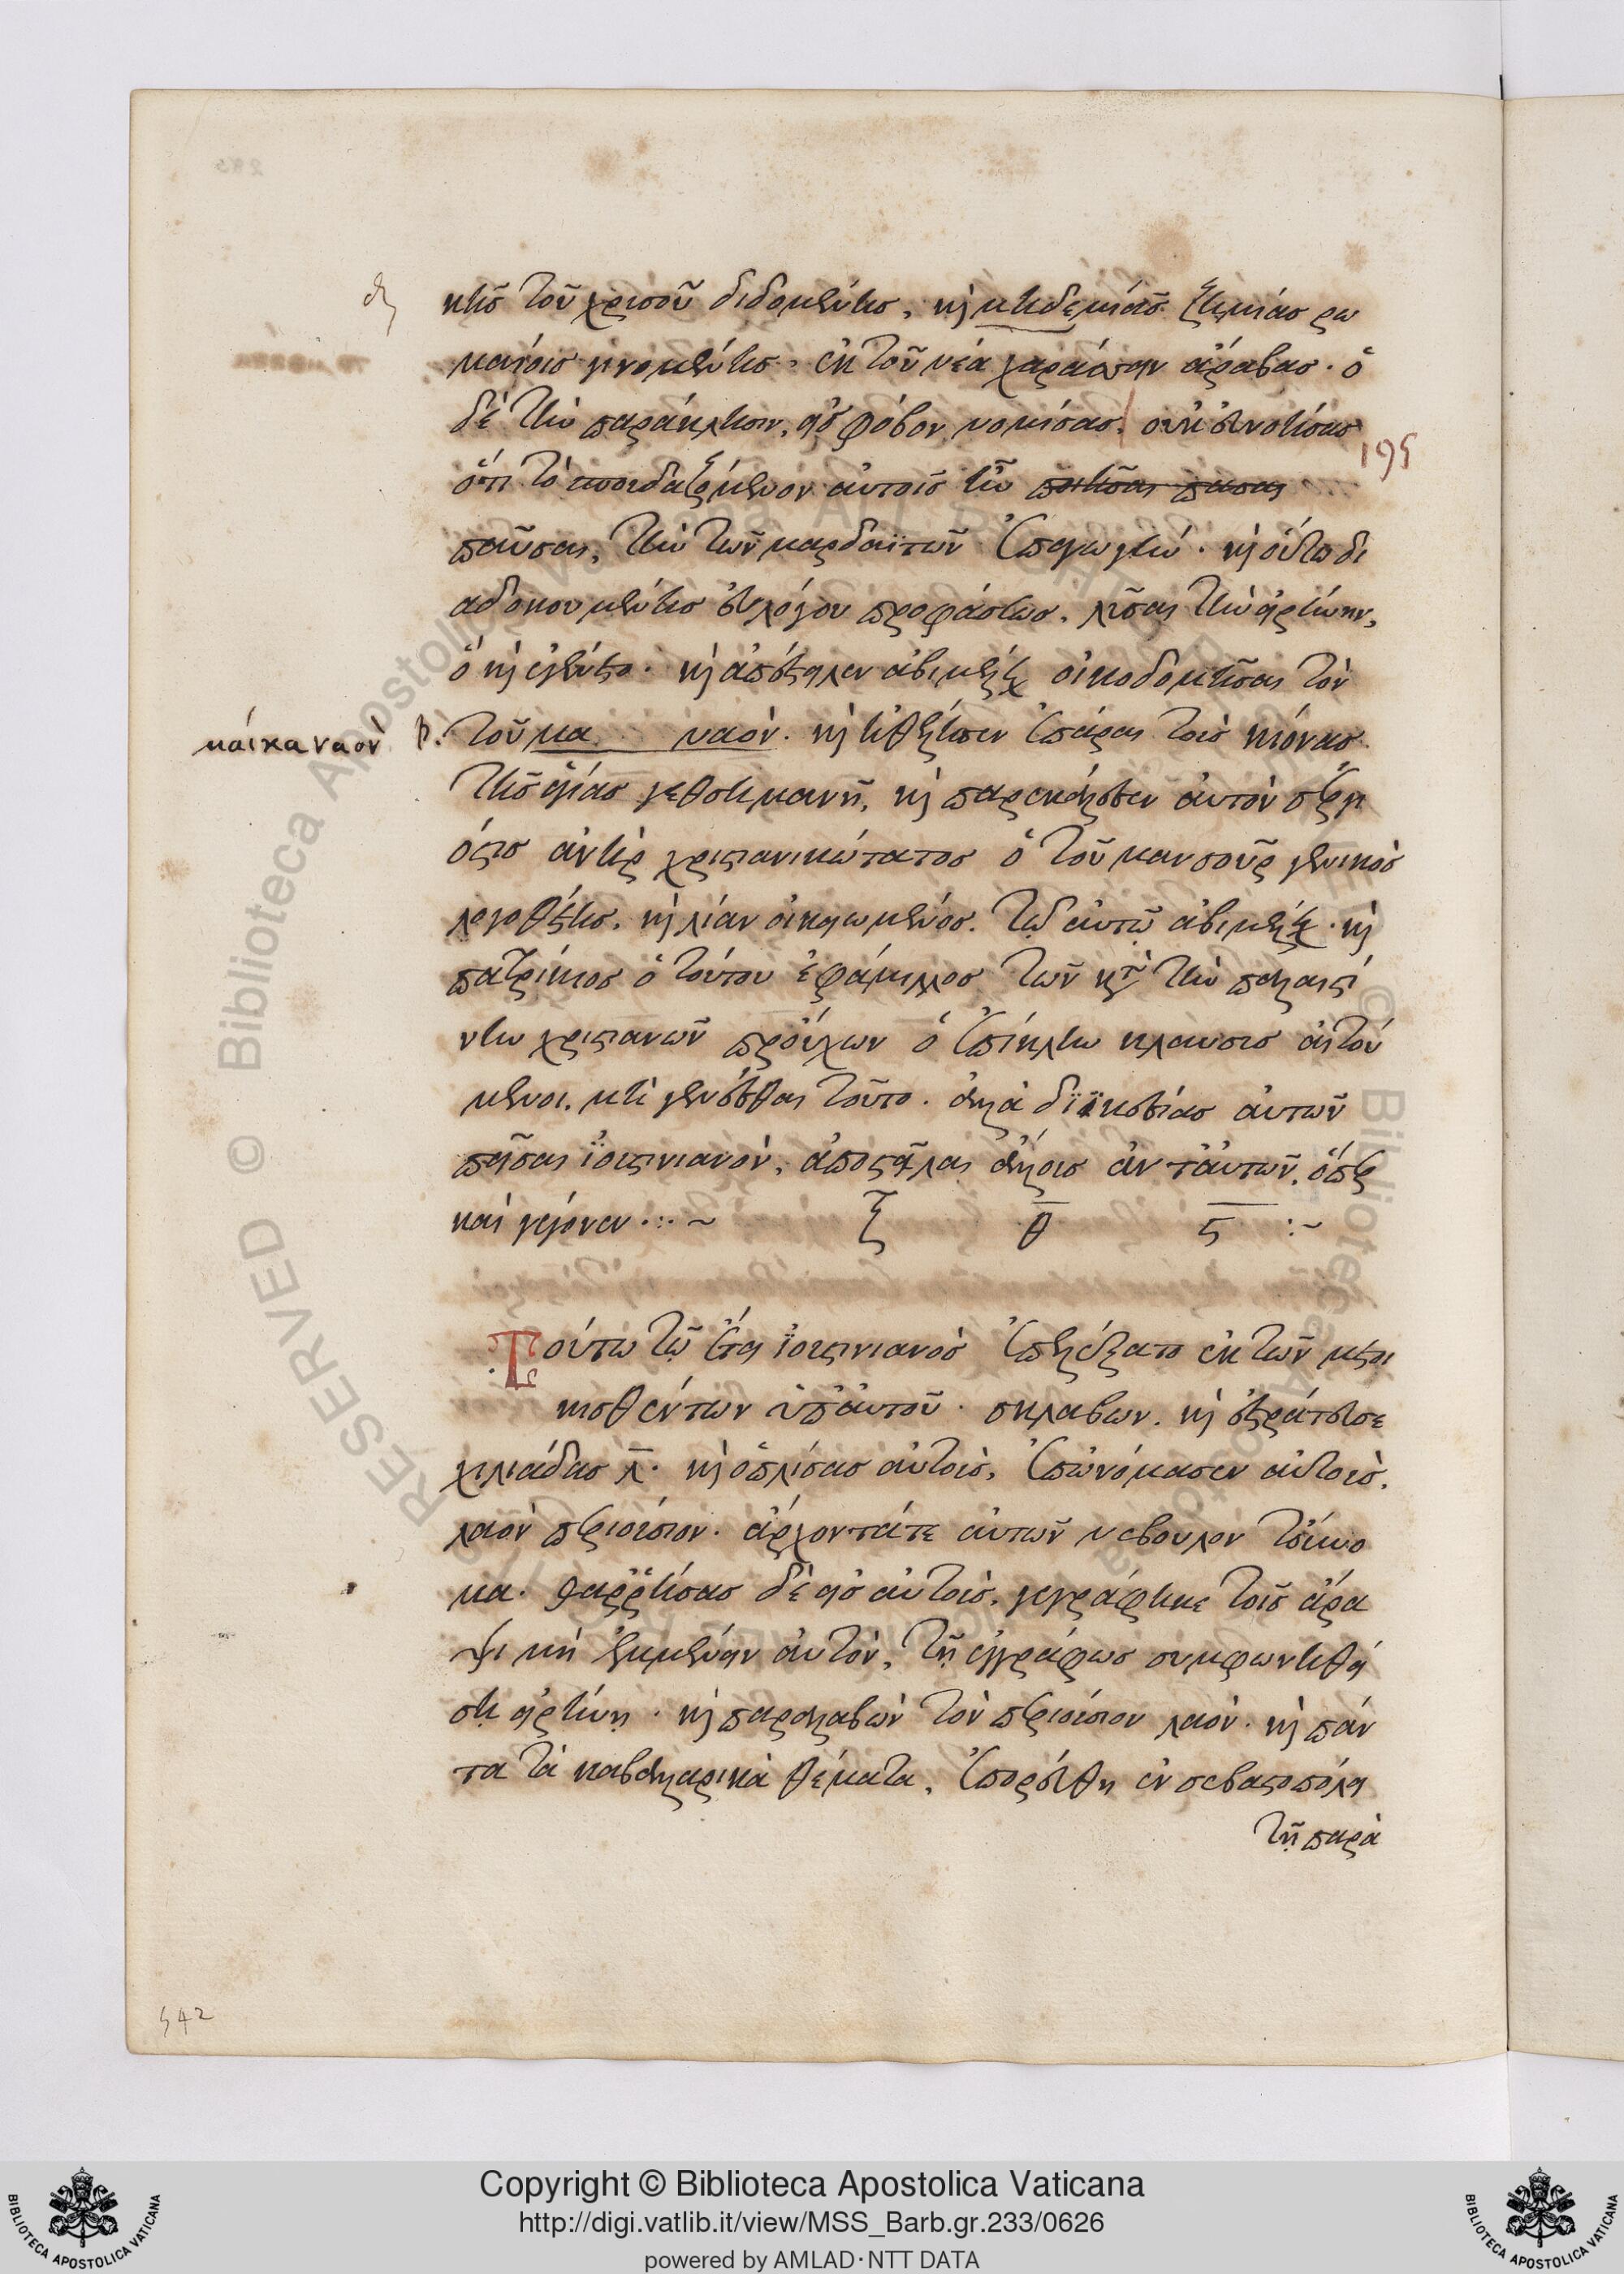 κῆς τοῦ χριστοῦ διδομένης, καὶ μηδεμιᾶς ζημίας ρω
μαίοις γινομένης, ἐκ τοῦ νέα χαράσσειν ἄραβας. ὁ
δὲ τὴν παράκλησιν, εἰς φόβον νομίσας, οὐκ ἐννοήσας
195
ὅτι τὸ σπουδαζόμενον αὐτοῖς ἦν ποιῆσαι πασαι
παῦσαι, τὴν τῶν μαρδαϊτῶν ἐπαγωγήν. καὶ οὕτω δι
αδοκουμένης εὐλόγου προφάσεως, λῦσαι τὴν εἰρήνην,
ὃ καὶ ἐγένετο. καὶ ἀπέστειλεν ἀβιμέλεχ οἰκοδομῆσαι τὸν
μαίκα ναόν β. τοῦ μα ναὸν. καὶ ἠθέλησεν ἐπάραι τοὺς κίονας
τῆς ἁγίας γεθσημανῆ, καὶ παρεκάλεσεν αὐτὸν σέργι
ός τις ἀνὴρ χριστιανικώτατος ὁ τοῦ μανσοῦρ γενικὸς
λογοθέτης, καὶ λίαν οἰκειωμένος. τῷ αὐτῷ ἀβιμέλεχ. καὶ
πατρίκιος ὁ τούτου ἐφάμιλλος τῶν κατὰ τὴν παλαιστί
νην χριστιανῶν προύχων ὁ ἐπίκλην κλαυσὺς αἰτού
μενοι. μὴ γενέσθαι τοῦτο. ἀλλὰ δι ἱκεσίας αὐτῶν
πεῖσαι ἰουστινιανὸν, ἀποστεῖλαι ἄλλους ἀντ' αὐτῶν, ὅπερ
καὶ γέγονεν ξ θ ς
Τούτω τῷ ἔτει ἰουστινιανὸς ἐπελέξατο ἐκ τῶν μετοι
κισθέντων ὑπ' αὐτοῦ. σκλαβων. καὶ ἐστράτευσε
χιλιάδας λ. καὶ ὁπλίσας αὐτοὺς, ἐπωνόμασεν αὐτοὺς,
λαὸν περιούσιον. ἄρχοντά τε αὐτῶν νεβουλον τοὔνο
μα. θαρρήσας δὲ εἰς αὐτοὺς, γεγράφηκε τοῖς ἄρα
ψι μὴ ἐμμένειν αὐτὸν, τῇ ἐγγράφως συμφωνηθεί
σῃ εἰρήνῃ. καὶ παραλαβὼν τὸν περιούσιον λαόν. καὶ πάν
τα τὰ καβαλλαρικὰ θέματα, ἐπορεύθη ἐν σεβαστοπόλει
τῇ παρὰ
542
Copyright © Biblioteca Apostolica Vaticana
http://digi.vatlib.it/view/MSS_Barb.gr.233/0626
powered by AMLAD·NTT DATA